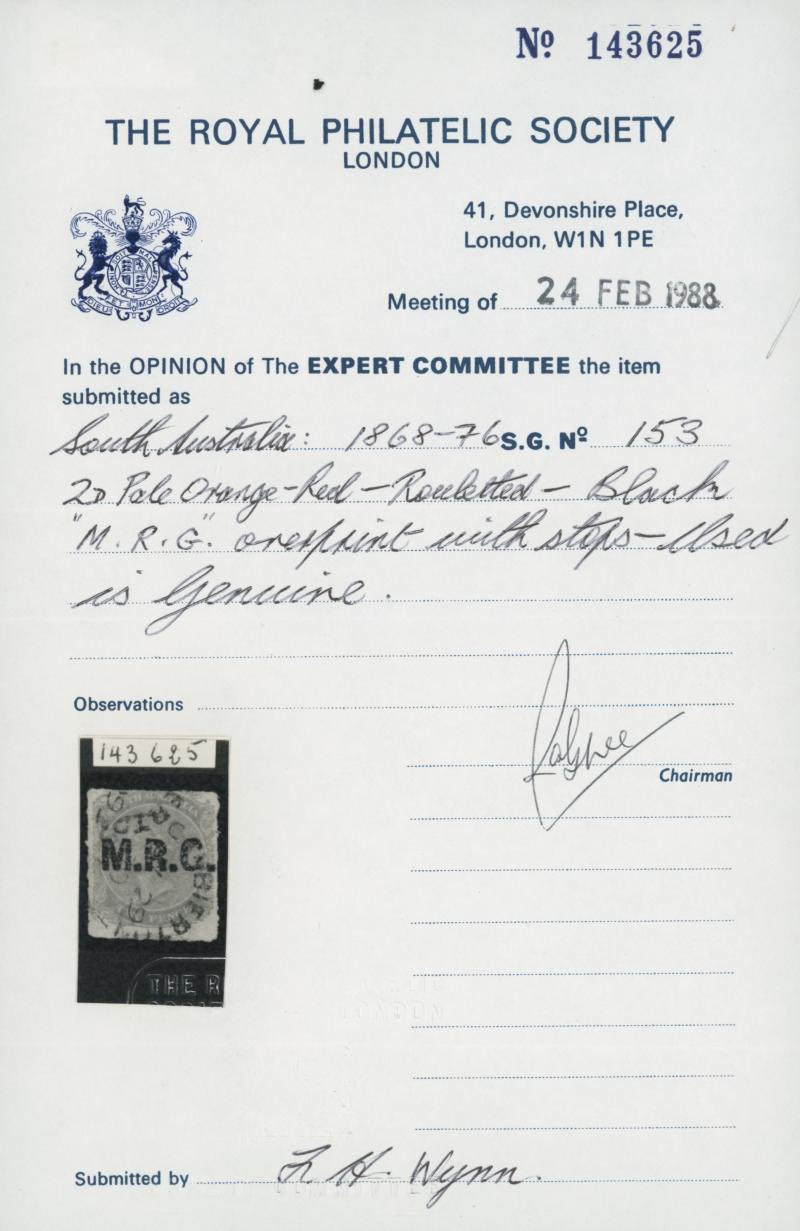 Nº 143625
THE ROYAL PHILATELIC SOCIETY
LONDON
41, Devonshire Place,
London, W1N 1PE
Meeting of 24 FEB 1988
In the OPINION of The EXPERT COMMITTEE the item
submitted as
South Australia: 1868-76 S.G. Nº 153
2D Pale Orange-Red - Rouletted - Black
"M.R.G." overprint with stops - Used
is Genuine.
Observations
143625
Chairman
M.R.G.
THE R
LONDON
Submitted by L H. Wynn.